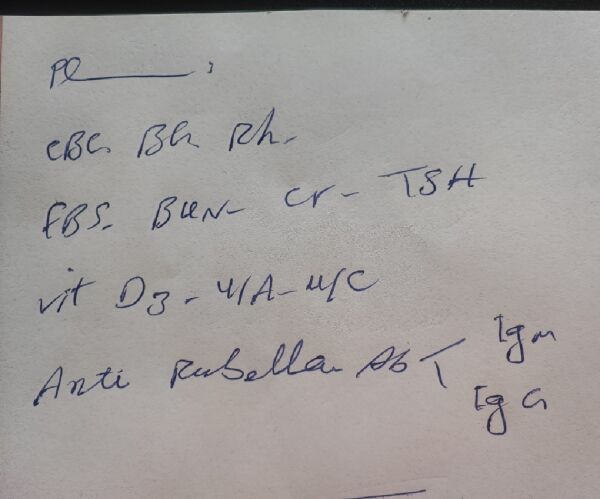 Pl
CBC. BG. Rh-
FBS. BUN- Cr- TSH
vit D3 - U/A - U/C
Anti Rubella Ab IgM
IgG